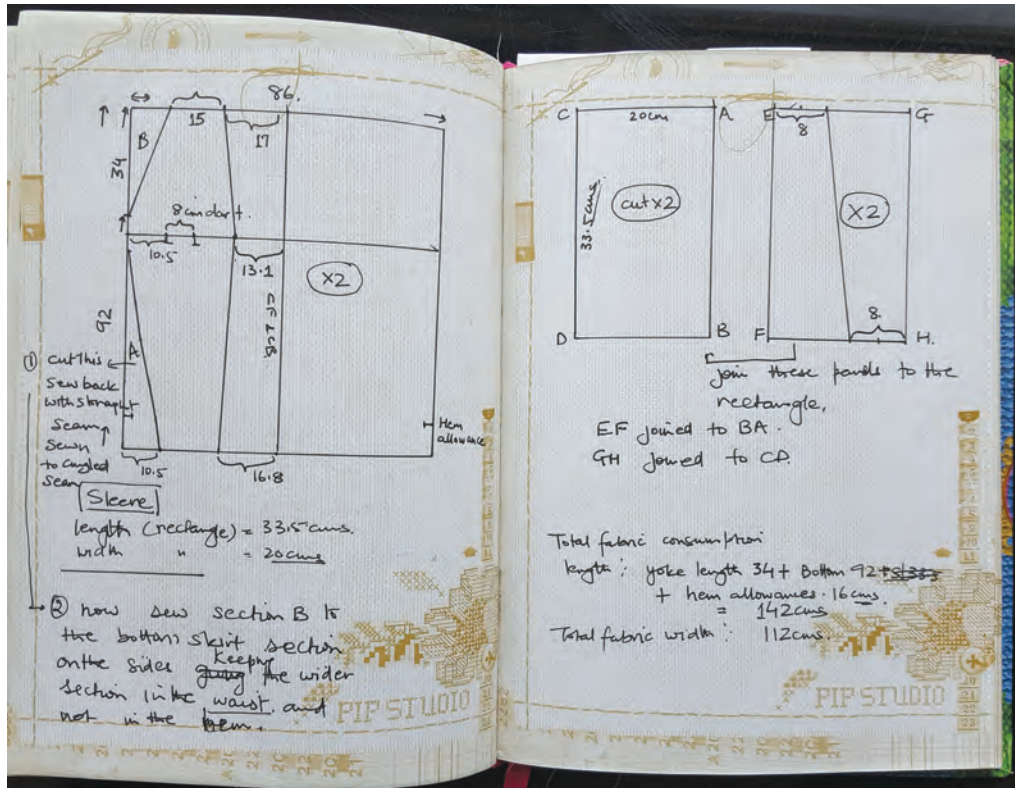 86.
15
17
B
34
8 cm dart.
10.5
13.1
X2
CF
92
A
① cut this
Sew back
with straight
Seam
Sewn
to angled
Seam
10.5
16.8
Hem
allowance
Sleeve
length (rectangle) = 33.5 cms.
width " = 20 cms
② now sew section B to
the bottom skirt section
on the sides keeping the wider
section in the waist and
not in the hem.
PIP STUDIO
C
20cm
A
E
8
G
33.5 cms.
cut x2
X2
8
D
B
F
H.
join these panels to the
rectangle,
EF joined to BA.
GH joined to CD.
Total fabric consumption
length: yoke length 34 + Bottom 92
+ hem allowances. 16 cms.
= 142 cms
Total fabric width: 112 cms.
PIP STUDIO